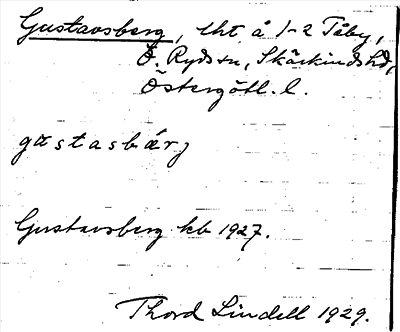 Gustavsberg, lht å 1-2 Täby,
Ö. Ryds sn, Skärkinds hd,
Östergötl. l.
gustasbærj
Gustavsberg kb 1927.
Thord Lindell 1929.